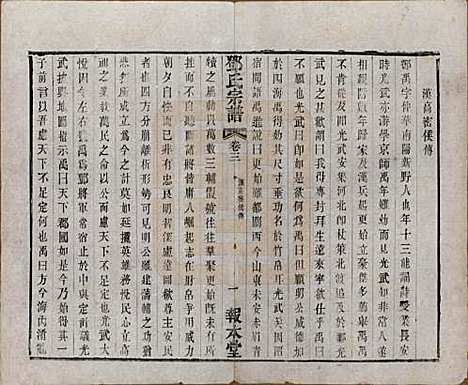 漢高密侯傳
鄧禹字仲華南陽新野人也年十三能誦詩受業長安
時光武亦游學京師禹年雖幼而見光武知非常人遂
相親附數年歸家及漢兵起更始立豪傑多薦舉禹禹
不肯從及聞光武安集河北即杖策北渡追及於鄴光
武見之甚歡謂曰我得專封拜生遠來寧欲仕乎禹曰
不願也光武曰即如是何欲為禹曰但願明公威德加
於四海禹得效其尺寸垂功名於竹帛耳光武笑因留
宿閒語禹進說曰更始雖都關西今山東未安赤眉青
犢之屬動以萬數三輔假號往往羣聚更始既未有所
挫而不自聽斷諸將皆庸人屈起志在財帛爭用威力
朝夕自快而已非有忠良明智深慮遠圖欲尊主安民
者也四方分崩離析形勢可見明公雖建藩輔之功猶
恐無所成立於今之計莫如延攬英雄務悅民心立高
祖之業救萬民之命以公而慮天下不足定也光武大
悅因令左右號禹曰鄧將軍常宿止於中與定計議光
武
子前言以吾慮天下不足定何也禹曰方今海內淆亂
鄧氏宗譜
卷三
漢高密侯傳
一
報本堂